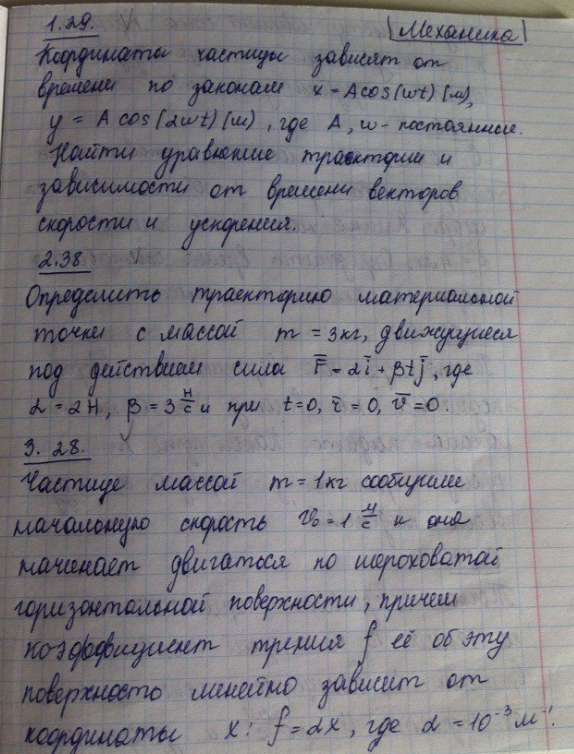 1.29. Механика
Координаты частицы зависят от
времени по законам x = A cos(wt) (м),
y = A cos(2wt) (м), где A, w - постоянные.
Найти уравнение траектории и
зависимости от времени векторов
скорости и ускорения.
2.38
Определить траекторию материальной
точки с массой m = 3кг, движущиеся
под действием сила F̅ = αi̅ + βtj̅, где
α = 2Н, β = 3 н/с и при t=0, r̅ = 0, v̅ = 0.
3.28.
Частице массой m = 1кг сообщили
начальную скорость v₀ = 1 м/с и она
начинает двигаться по шероховатой
горизонтальной поверхности, причем
коэффициент трения f её об эту
поверхность линейно зависит от
координаты x: f = αx, где α = 10⁻³ м⁻¹.